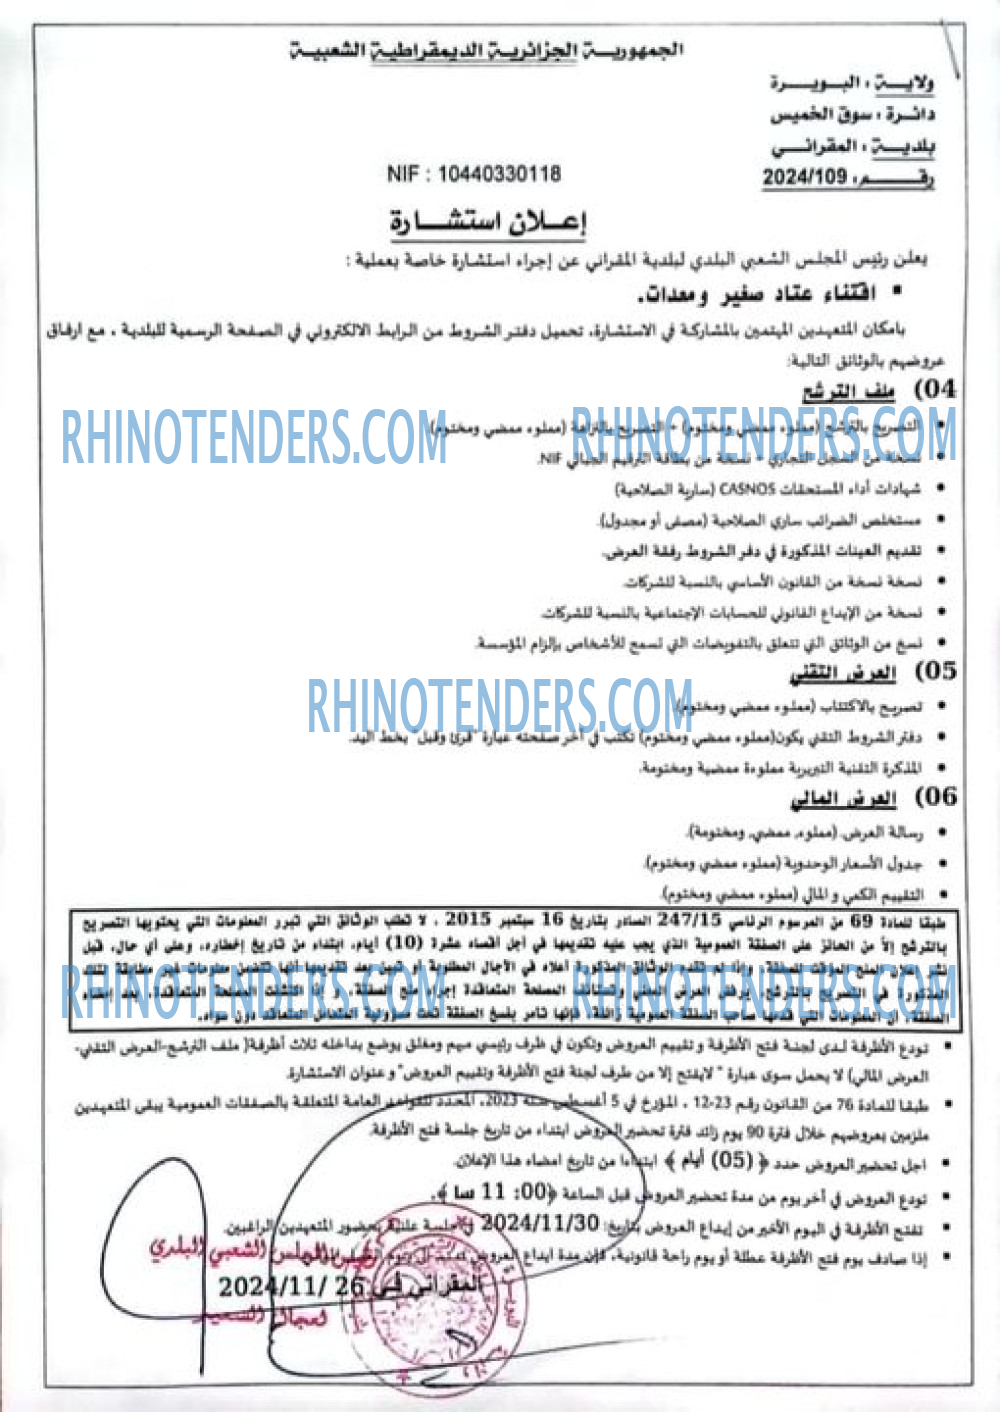 الجمهوريـــة الجزائريـة الديمقراطيـة الشعبيـة
ولايـــة : البــويــــرة
دائـرة : سوق الخميس
بلديـــة : المقرانـــي
رقـــــم: 2024/109
NIF : 10440330118
إعـــلان استشـــارة
يعلن رئيس المجلس الشعبي البلدي لبلدية المقراني عن إجراء استشارة خاصة بعملية :
▪ اقتناء عتاد صغير ومعدات.
بامكان المتعهدين المهتمين بالمشاركة في الاستشارة، تحميل دفتر الشروط من الرابط الالكتروني في الصفحة الرسمية للبلدية ، مع ارفاق
عروضهم بالوثائق التالية:
04) ملف الترشح
RHINOTENDERS.COM
RHINOTENDERS.COM
• التصريح بالترشح (مملوء ممضي ومختوم) + التصريح بالنزاهة (مملوء ممضي ومختوم)
• نسخة من السجل التجاري + نسخة من بطاقة الترقيم الجبائي NIF.
• شهادات أداء المستحقات CASNOS (سارية الصلاحية)
• مستخلص الضرائب ساري الصلاحية (مصفى أو مجدول).
• تقديم العينات المذكورة في دفر الشروط رفقة العرض.
• نسخة نسخة من القانون الأساسي بالنسبة للشركات.
• نسخة من الإيداع القانوني للحسابات الإجتماعية بالنسبة للشركات.
• نسخ من الوثائق التي تتعلق بالتفويضات التي تسمح للأشخاص بإلزام المؤسسة.
05) العرض التقني
RHINOTENDERS.COM
• تصريح بالاكتتاب (مملوء ممضي ومختوم).
• دفتر الشروط التقني يكون(مملوء ممضي ومختوم) تكتب في آخر صفحته عبارة "قرئ وقبل" بخط اليد.
• المذكرة التقنية التبريرية مملوءة ممضية ومختومة.
06) العرض المالي
• رسالة العرض. (مملوء، ممضي، ومختومة).
• جدول الأسعار الوحدوية (مملوء ممضي ومختوم).
• التقييم الكمي و المالي (مملوء ممضي ومختوم).
طبقا للمادة 69 من المرسوم الرئاسي 247/15 الصادر بتاريخ 16 سبتمبر 2015 ، لا تطلب الوثائق التي تبرر المعلومات التي يحتويها التصريح
بالترشح إلا من الحائز على الصفقة العمومية الذي يجب عليه تقديمها في أجل أقصاه عشرة (10) أيام، ابتداء من تاريخ إخطاره، وعلى أي حال، قبل
نشر إعلان المنح المؤقت للصفقة، وإذا لم تقدم الوثائق المذكورة أعلاه في الآجال المطلوبة أو تبين بعد تقديمها أنها تتضمن معلومات غير مطابقة لتلك
المذكورة في التصريح بالترشح، يرفض العرض المعني وتستأنف المصلحة المتعاقدة إجراء منح الصفقة، و إذا اكتشفت المصلحة المتعاقدة، بعد إمضاء
الصفقة، أن المعلومات التي قدمها صاحب الصفقة العمومية زائفة، فإنها تأمر بفسخ الصفقة تحت مسؤولية المتعامل المتعاقد دون سواه.
RHINOTENDERS.COM
RHINOTENDERS.COM
▪ تودع الأظرفة لـدى لجنـة فتح الأظرفة و تقييم العروض وتكون في ظرف رئيسي مبهم ومغلق يوضع بداخله ثلاث أظرفة( ملف الترشح-العرض التقني-
العرض المالي) لا يحمل سوى عبارة " لايفتح إلا من طرف لجنة فتح الأظرفة وتقييم العروض" و عنوان الاستشارة.
▪ طبقا للمادة 76 من القانون رقم 23-12 ، المؤرخ في 5 أغسطس سنة 2023، المحدد للقواعد العامة المتعلقة بالصفقات العمومية يبقى المتعهدين
ملزمين بعروضهم خلال فترة 90 يوم زائد فترة تحضير العروض ابتداء من تاريخ جلسة فتح الأظرفة.
• اجل تحضير العروض حدد ﴿ (05) أيام ﴾ ابتداءا من تاريخ امضاء هذا الإعلان.
• تودع العروض في آخر يوم من مدة تحضير العروض قبل الساعة ﴿00: 11 سا ﴾.
• تفتح الأظرفة في اليوم الأخير من إيداع العروض بتاريخ: 2024/11/30 في جلسة علنية بحضور المتعهدين الراغبين.
• إذا صادف يوم فتح الأظرفة عطلة أو يوم راحة قانونية، فإن مدة ايداع العروض
رئيس المجلس الشعبي البلدي
المقراني في 26 /2024/11
لعجال السعيد